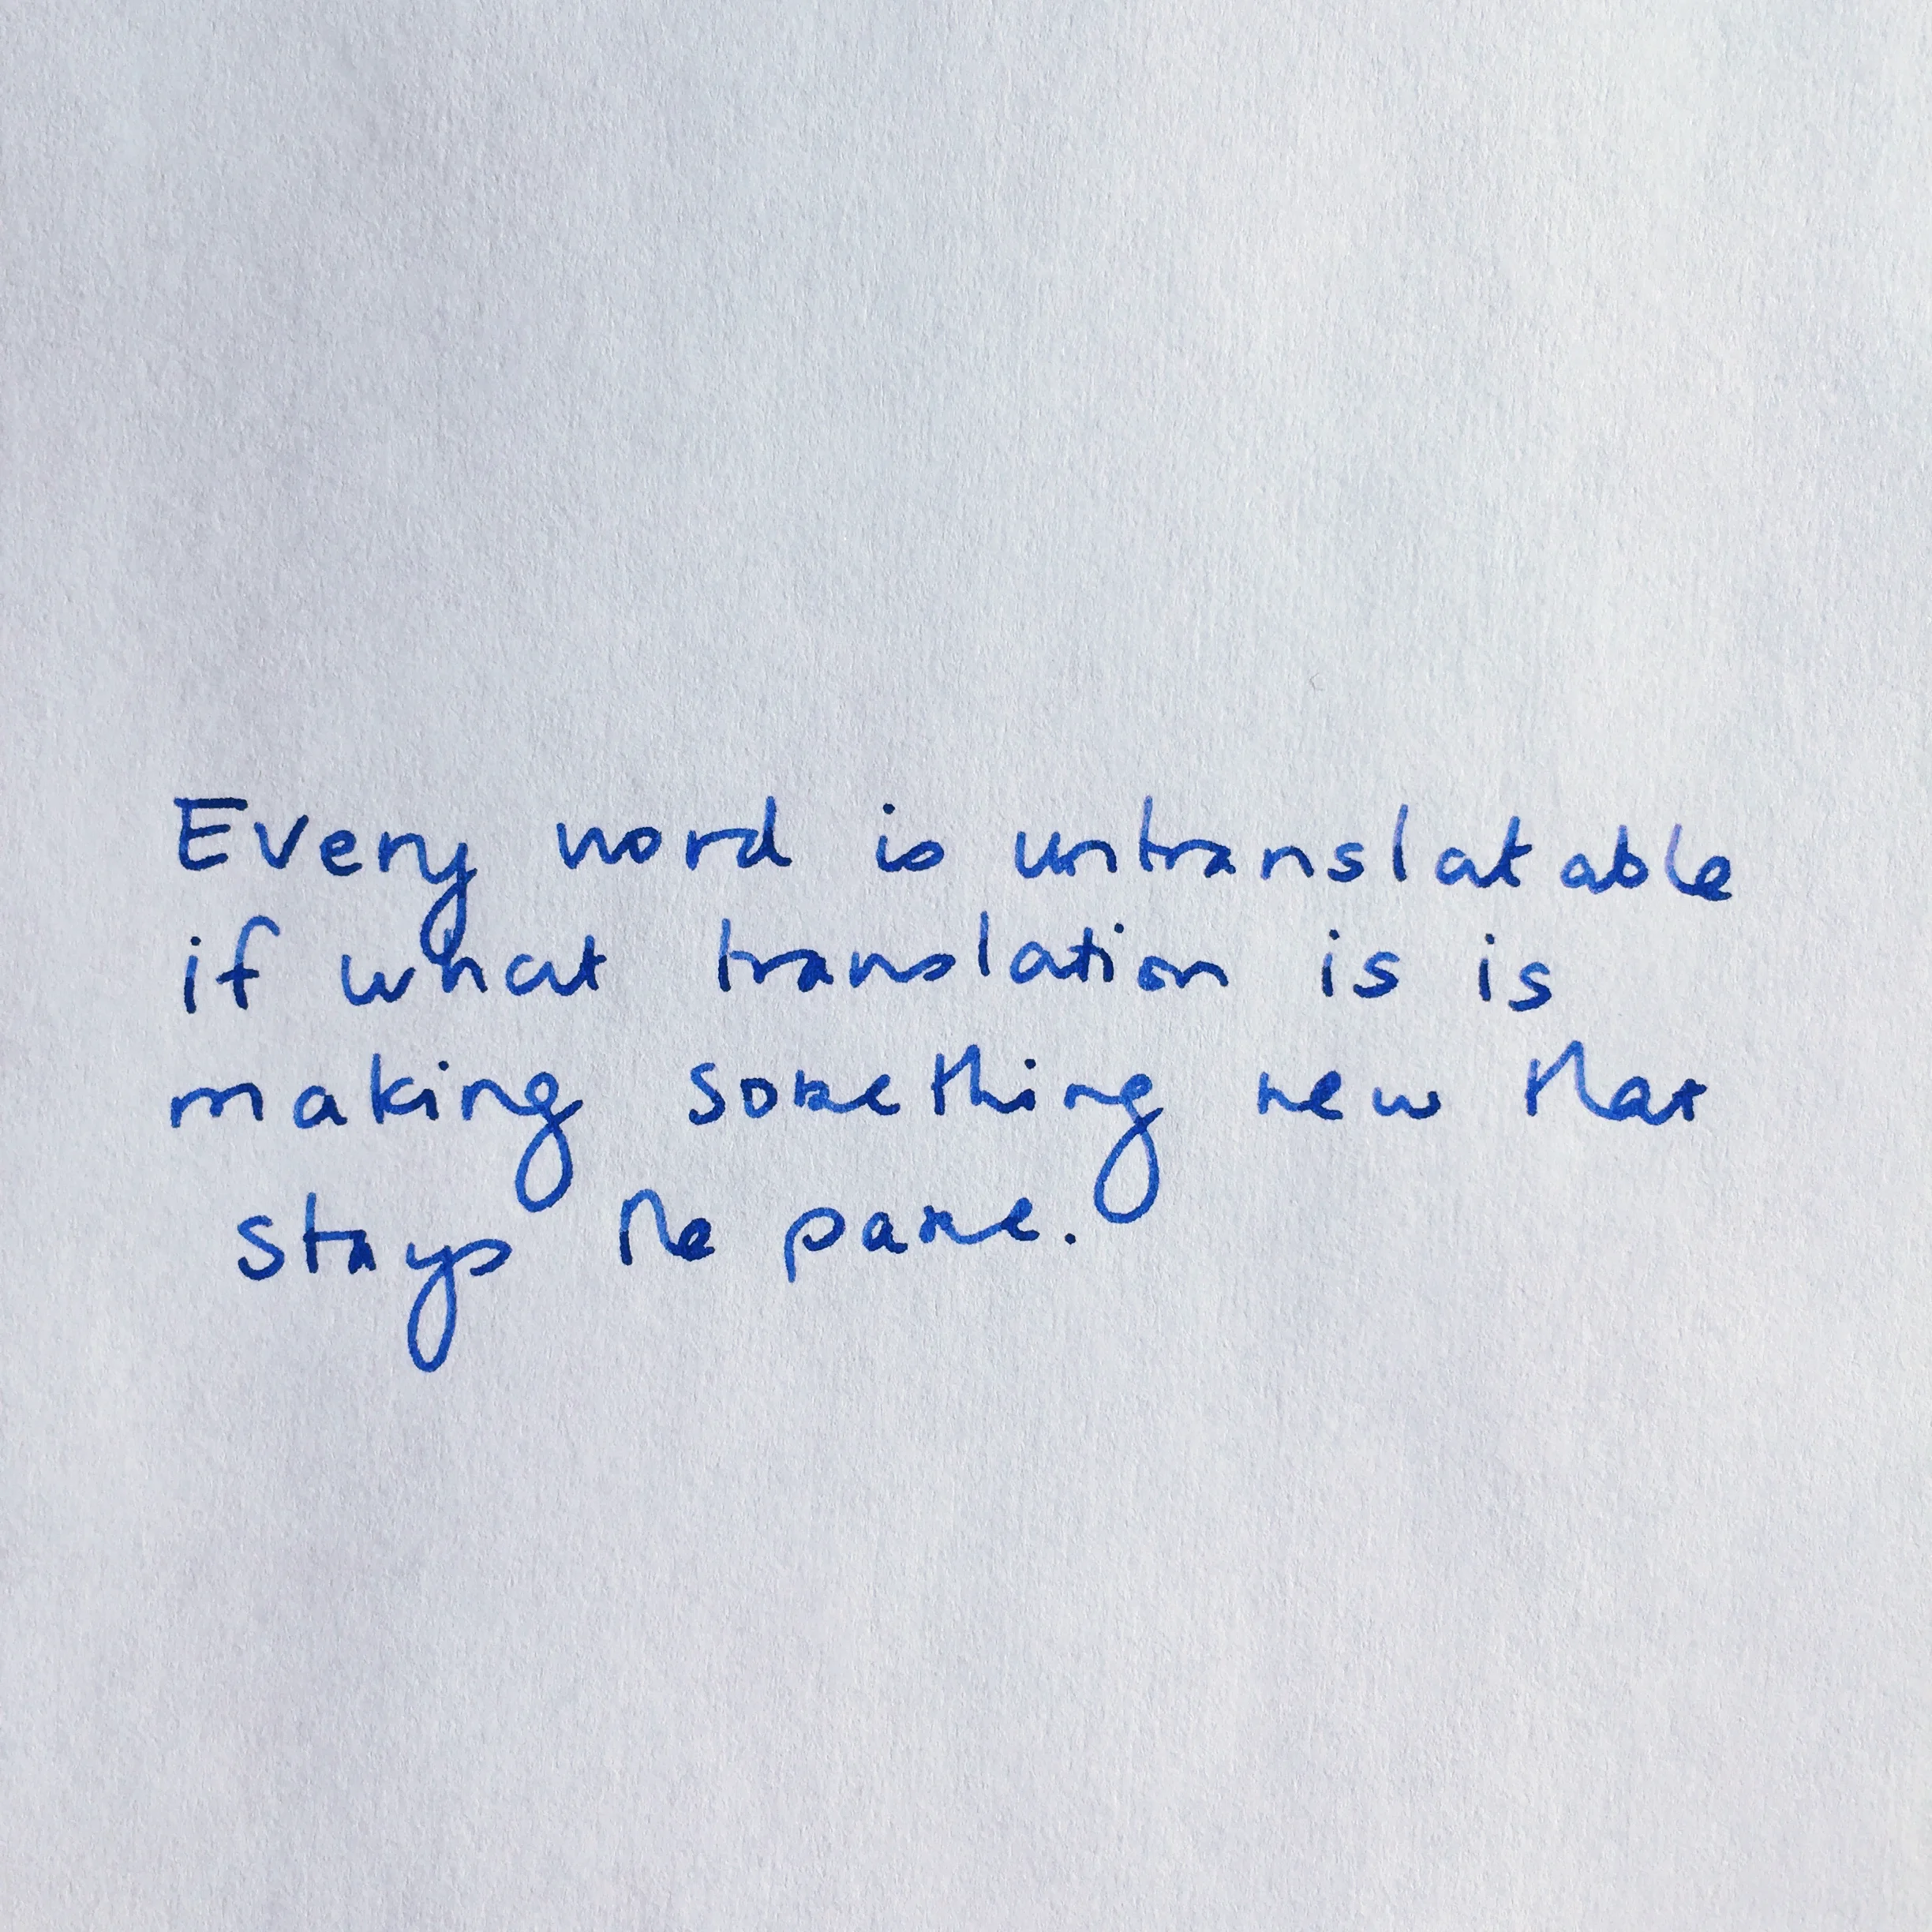 Every word is untranslatable
if what translation is is
making something new that
stays the same.